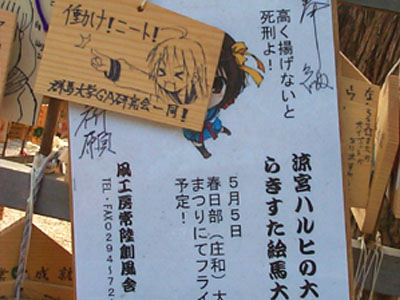 働け!ニート!
群馬大学GA研究会一同!
奉納
祈願
高く揚げないと
死刑よ!
涼宮ハルヒの大
らきすた絵馬大
5月5日
春日部(庄和)大
まつりにてフライ
予定!
凧工房常陸創風舎
TEL・FAX0294-72